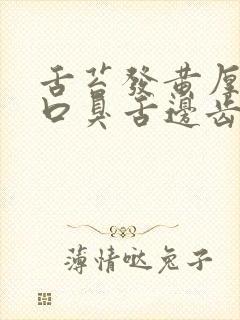 舌苔發黄厚
口臭舌邊齿
薄情哒兔子